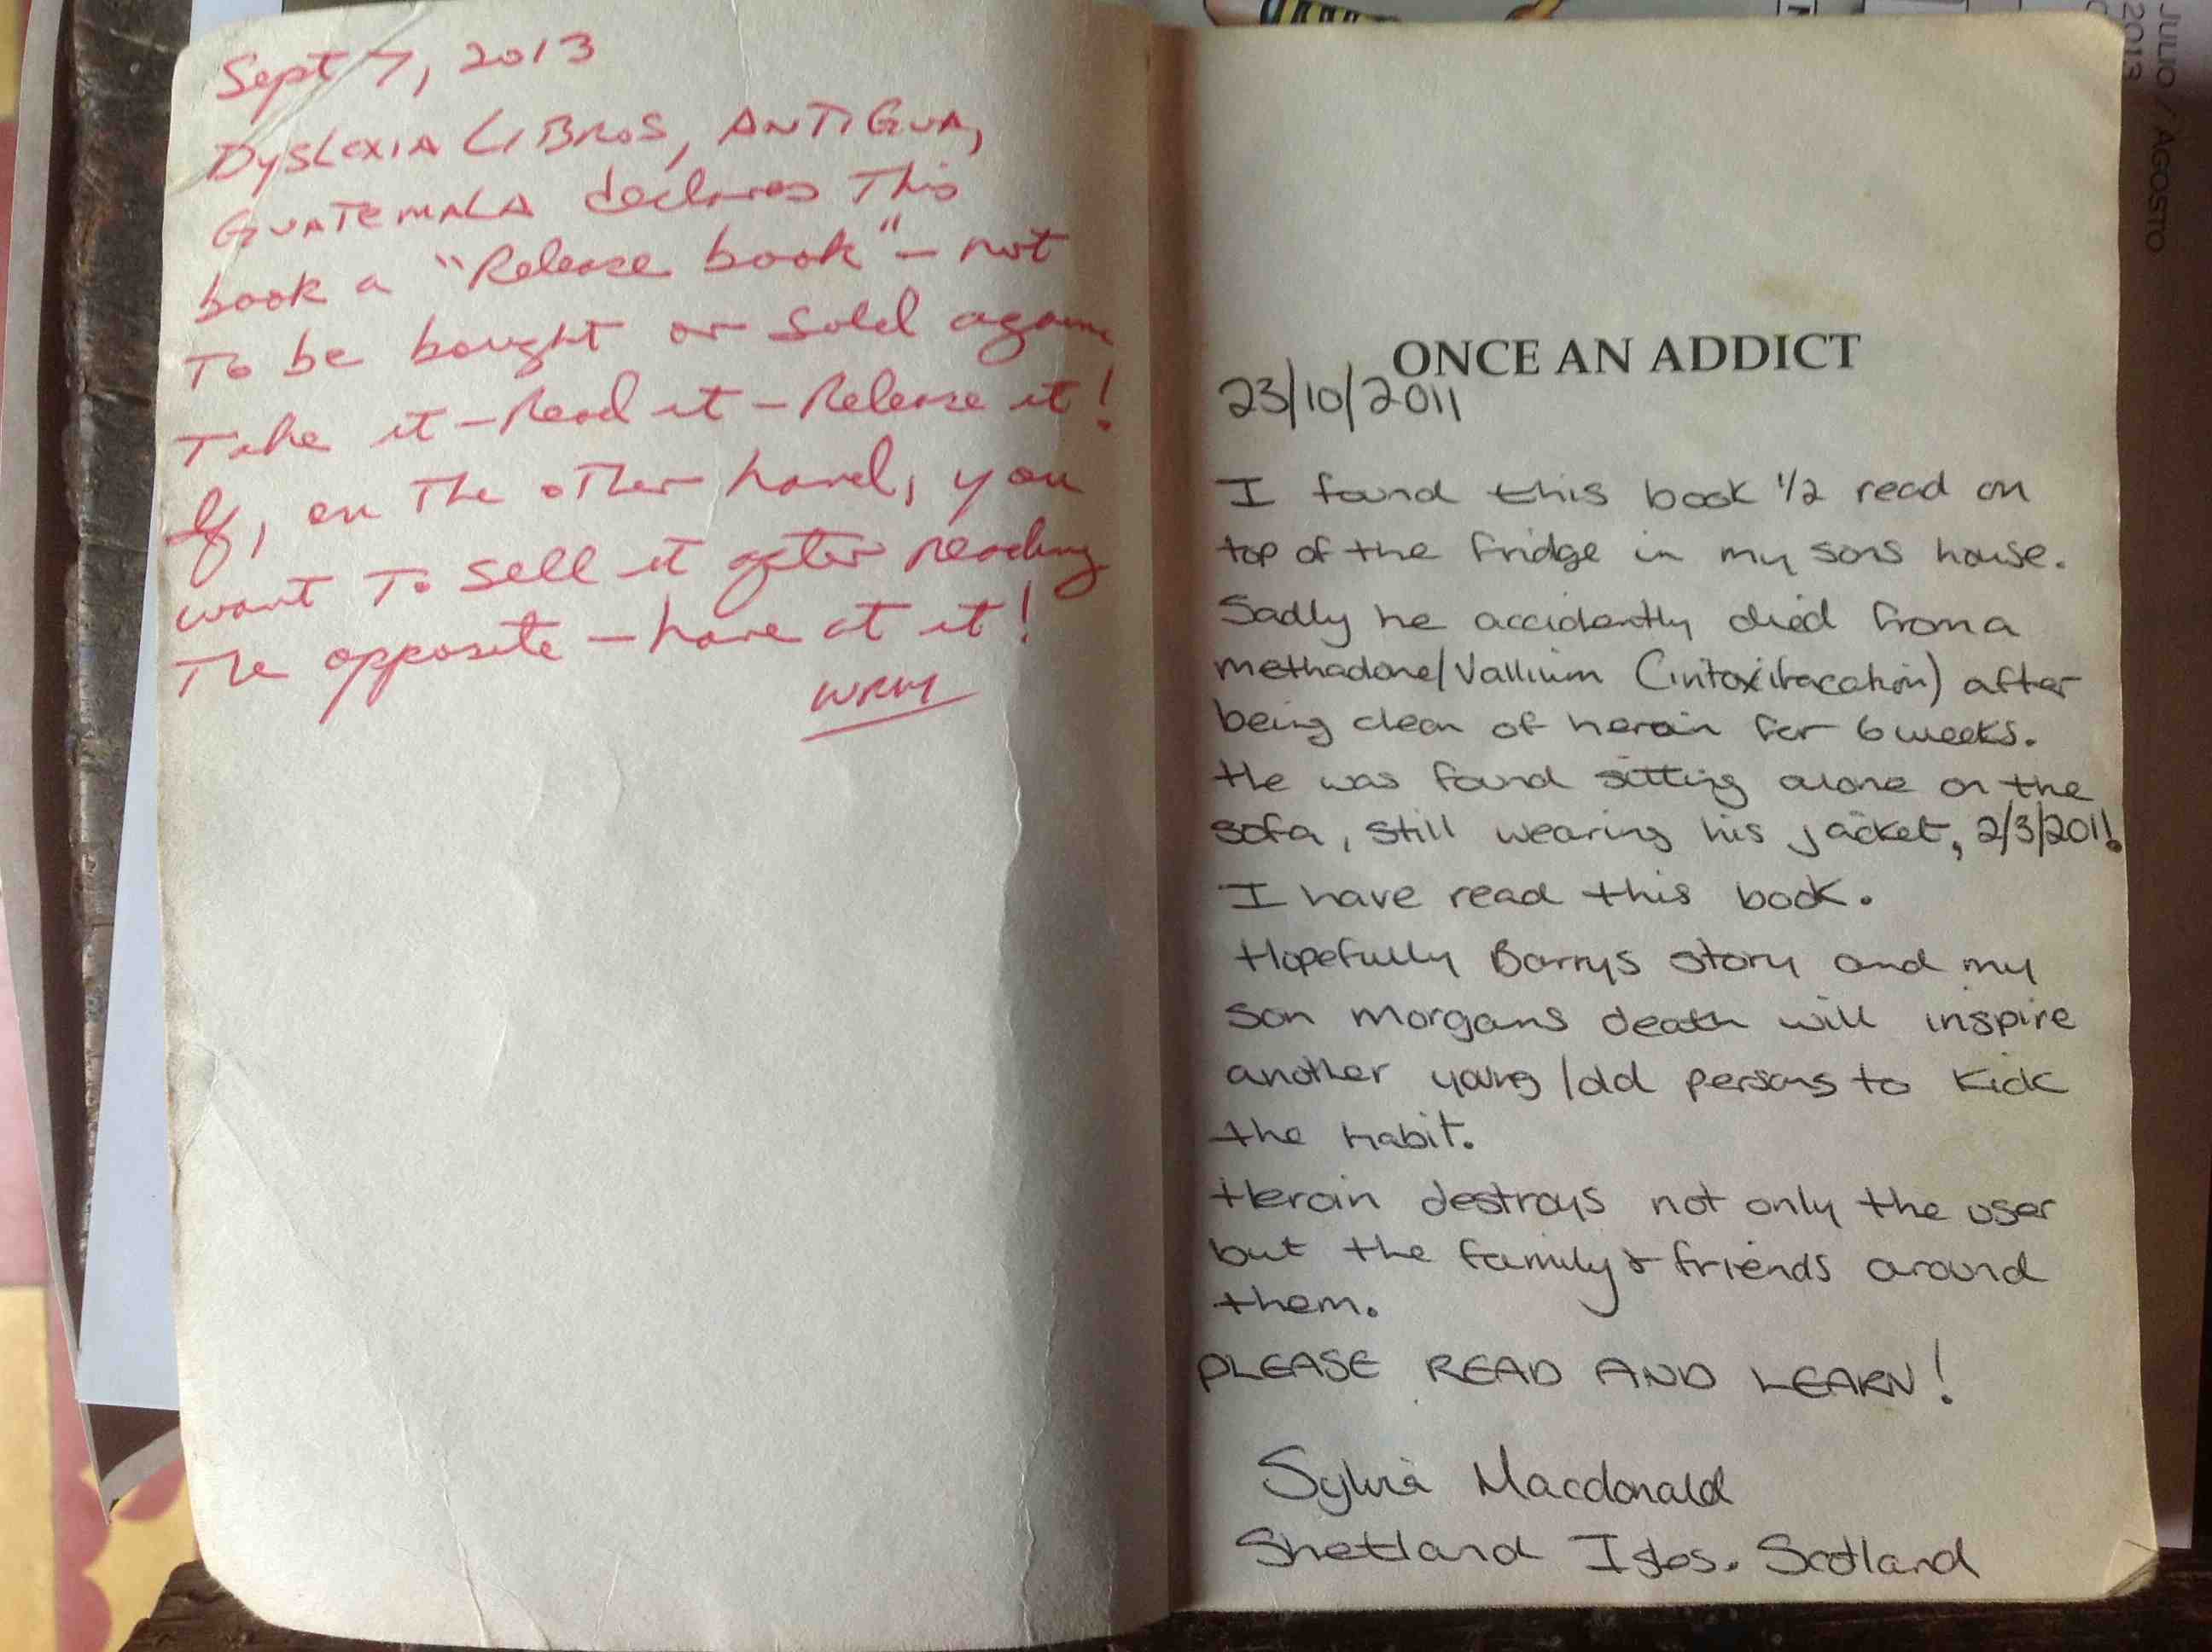 Sept 7, 2013
DYSLEXIA LIBROS, ANTIGUA,
GUATEMALA declares This
book a "Release book" – not
To be bought or sold again
Take it – Read it – Release it!
If, on The other hand, you
want To sell it after reading
The opposite – have at it!
WRM
ONCE AN ADDICT
23/10/2011
I found this book 1/2 read on
top of the fridge in my sons house.
Sadly he accidently died from a
methadone/Vallium (intoxitracation) after
being clean of heroin for 6 weeks.
He was found sitting alone on the
sofa, still wearing his jacket, 2/3/2011.
I have read this book.
Hopefully Barrys story and my
son Morgans death will inspire
another young/old persons to kick
the habit.
Heroin destroys not only the user
but the family & friends around
them.
PLEASE READ AND LEARN!
Sylvia Macdonald
Shetland Isles. Scotland
JULIO / AGOSTO
2013